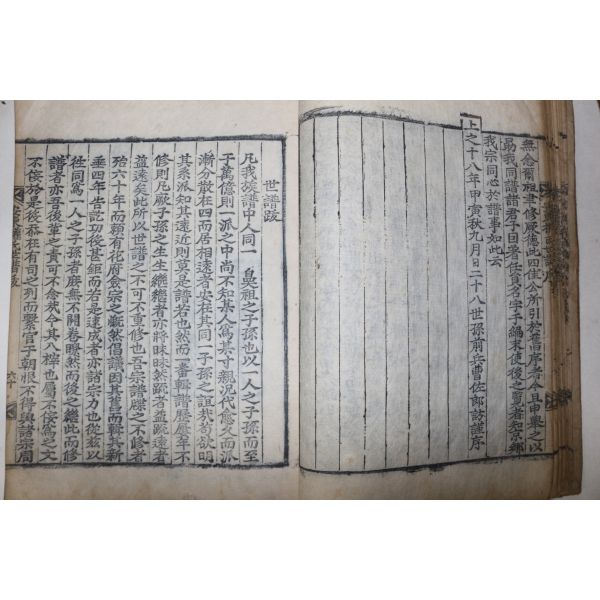 無念爾祖聿修厥德此四佳公所引於舊序者今且申擧之以
勗我同譜諸君子因書任員名字于編末使後之覽者知京鄕
我宗同心於譜事如此云
上之十八年甲寅秋九月日二十八世孫前兵曹佐郞訪謹序
世譜跋
凡我族譜中人同一 鼻祖之子孫也以一人之子孫而至
子萬億則一派之中尚不知某人爲某寸親況代愈久而派
漸分散在四而居相遠者安在其同一子孫之誼哉苟欲明
其系派知其遠近則莫是譜若也然而一番輯譜歷歷年不
修則凡厥子孫之生生繼繼者亦將昧昧然踈者益踈遠者
益遠矣此所以世譜之不可不重修也吾宗譜牒之不修者
殆六十年而賴有花府僉宗之慨然倡議因其舊而輯其新
垂四年告訖功役甚鉅而若是速成者亦諸宗力也從玆以
往同爲一人之子孫者庶無不開卷瞭然而後之繼此而修
譜者亦吾後輩之責可不念哉今其入梓也屬不佞爲之文
不佞於是役忝在有司之列而繫官于朝恨不得與諸宗周
六十